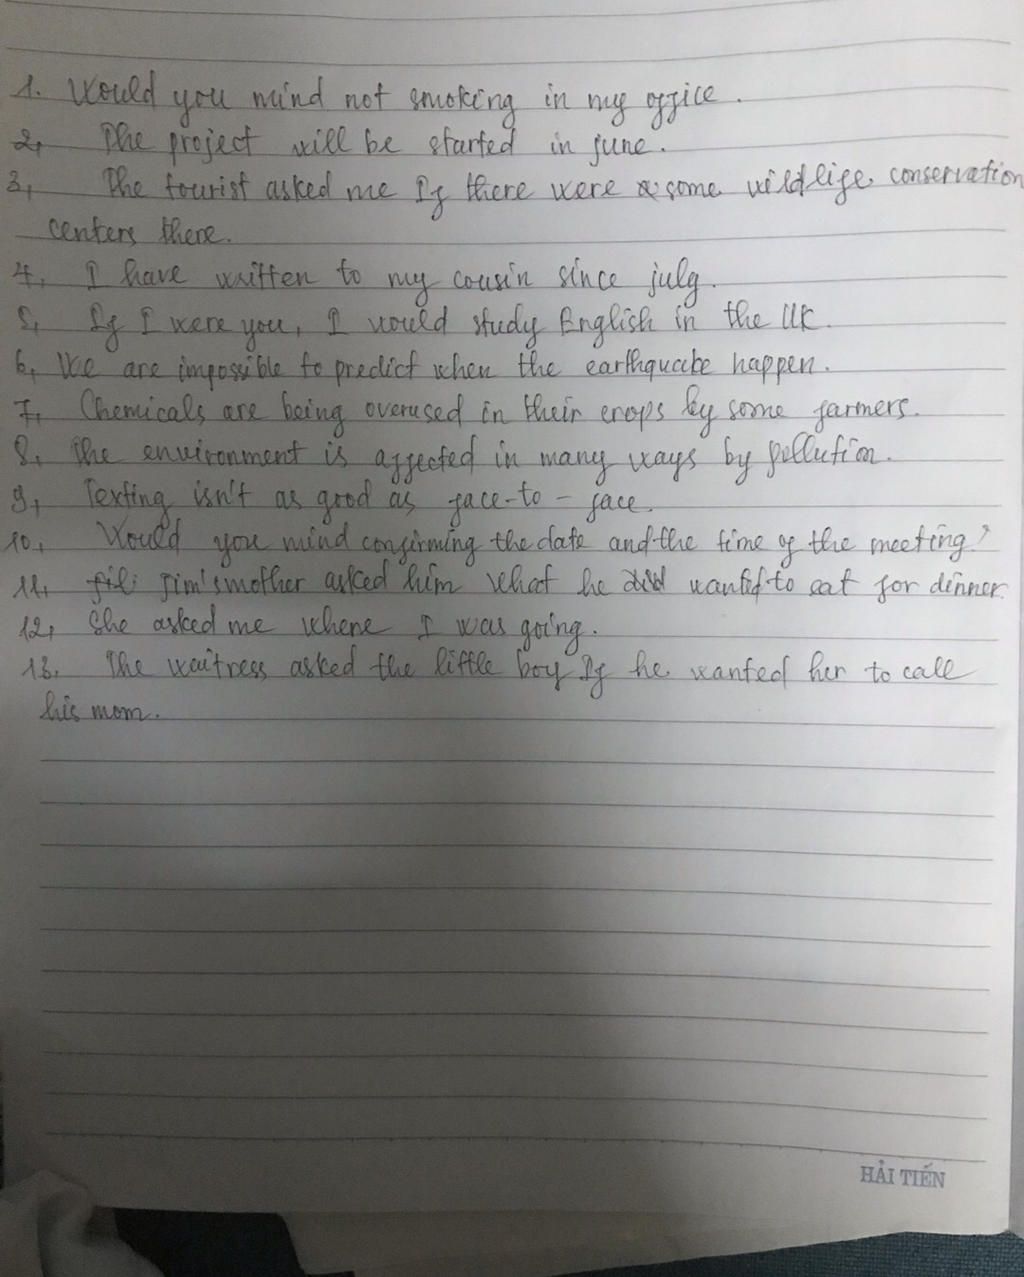 1. Would you mind not smoking in my office.
2, The project will be started in june.
3, The tourist asked me If there were some wildlife conservation
centers there.
4, I have written to my cousin since july.
5, If I were you, I would study English in the UK.
6, We are impossible to predict when the earthquake happen.
7, Chemicals are being overused in their crops by some farmers.
8, The environment is affected in many ways by pollution.
9, Texting isn't as good as face-to-face.
10, Would you mind confirming the date and the time of the meeting?
11, Jim's mother asked him what he wanted to eat for dinner.
12, She asked me where I was going.
13. The waitress asked the little boy If he wanted her to call
his mom.
HẢI TIẾN